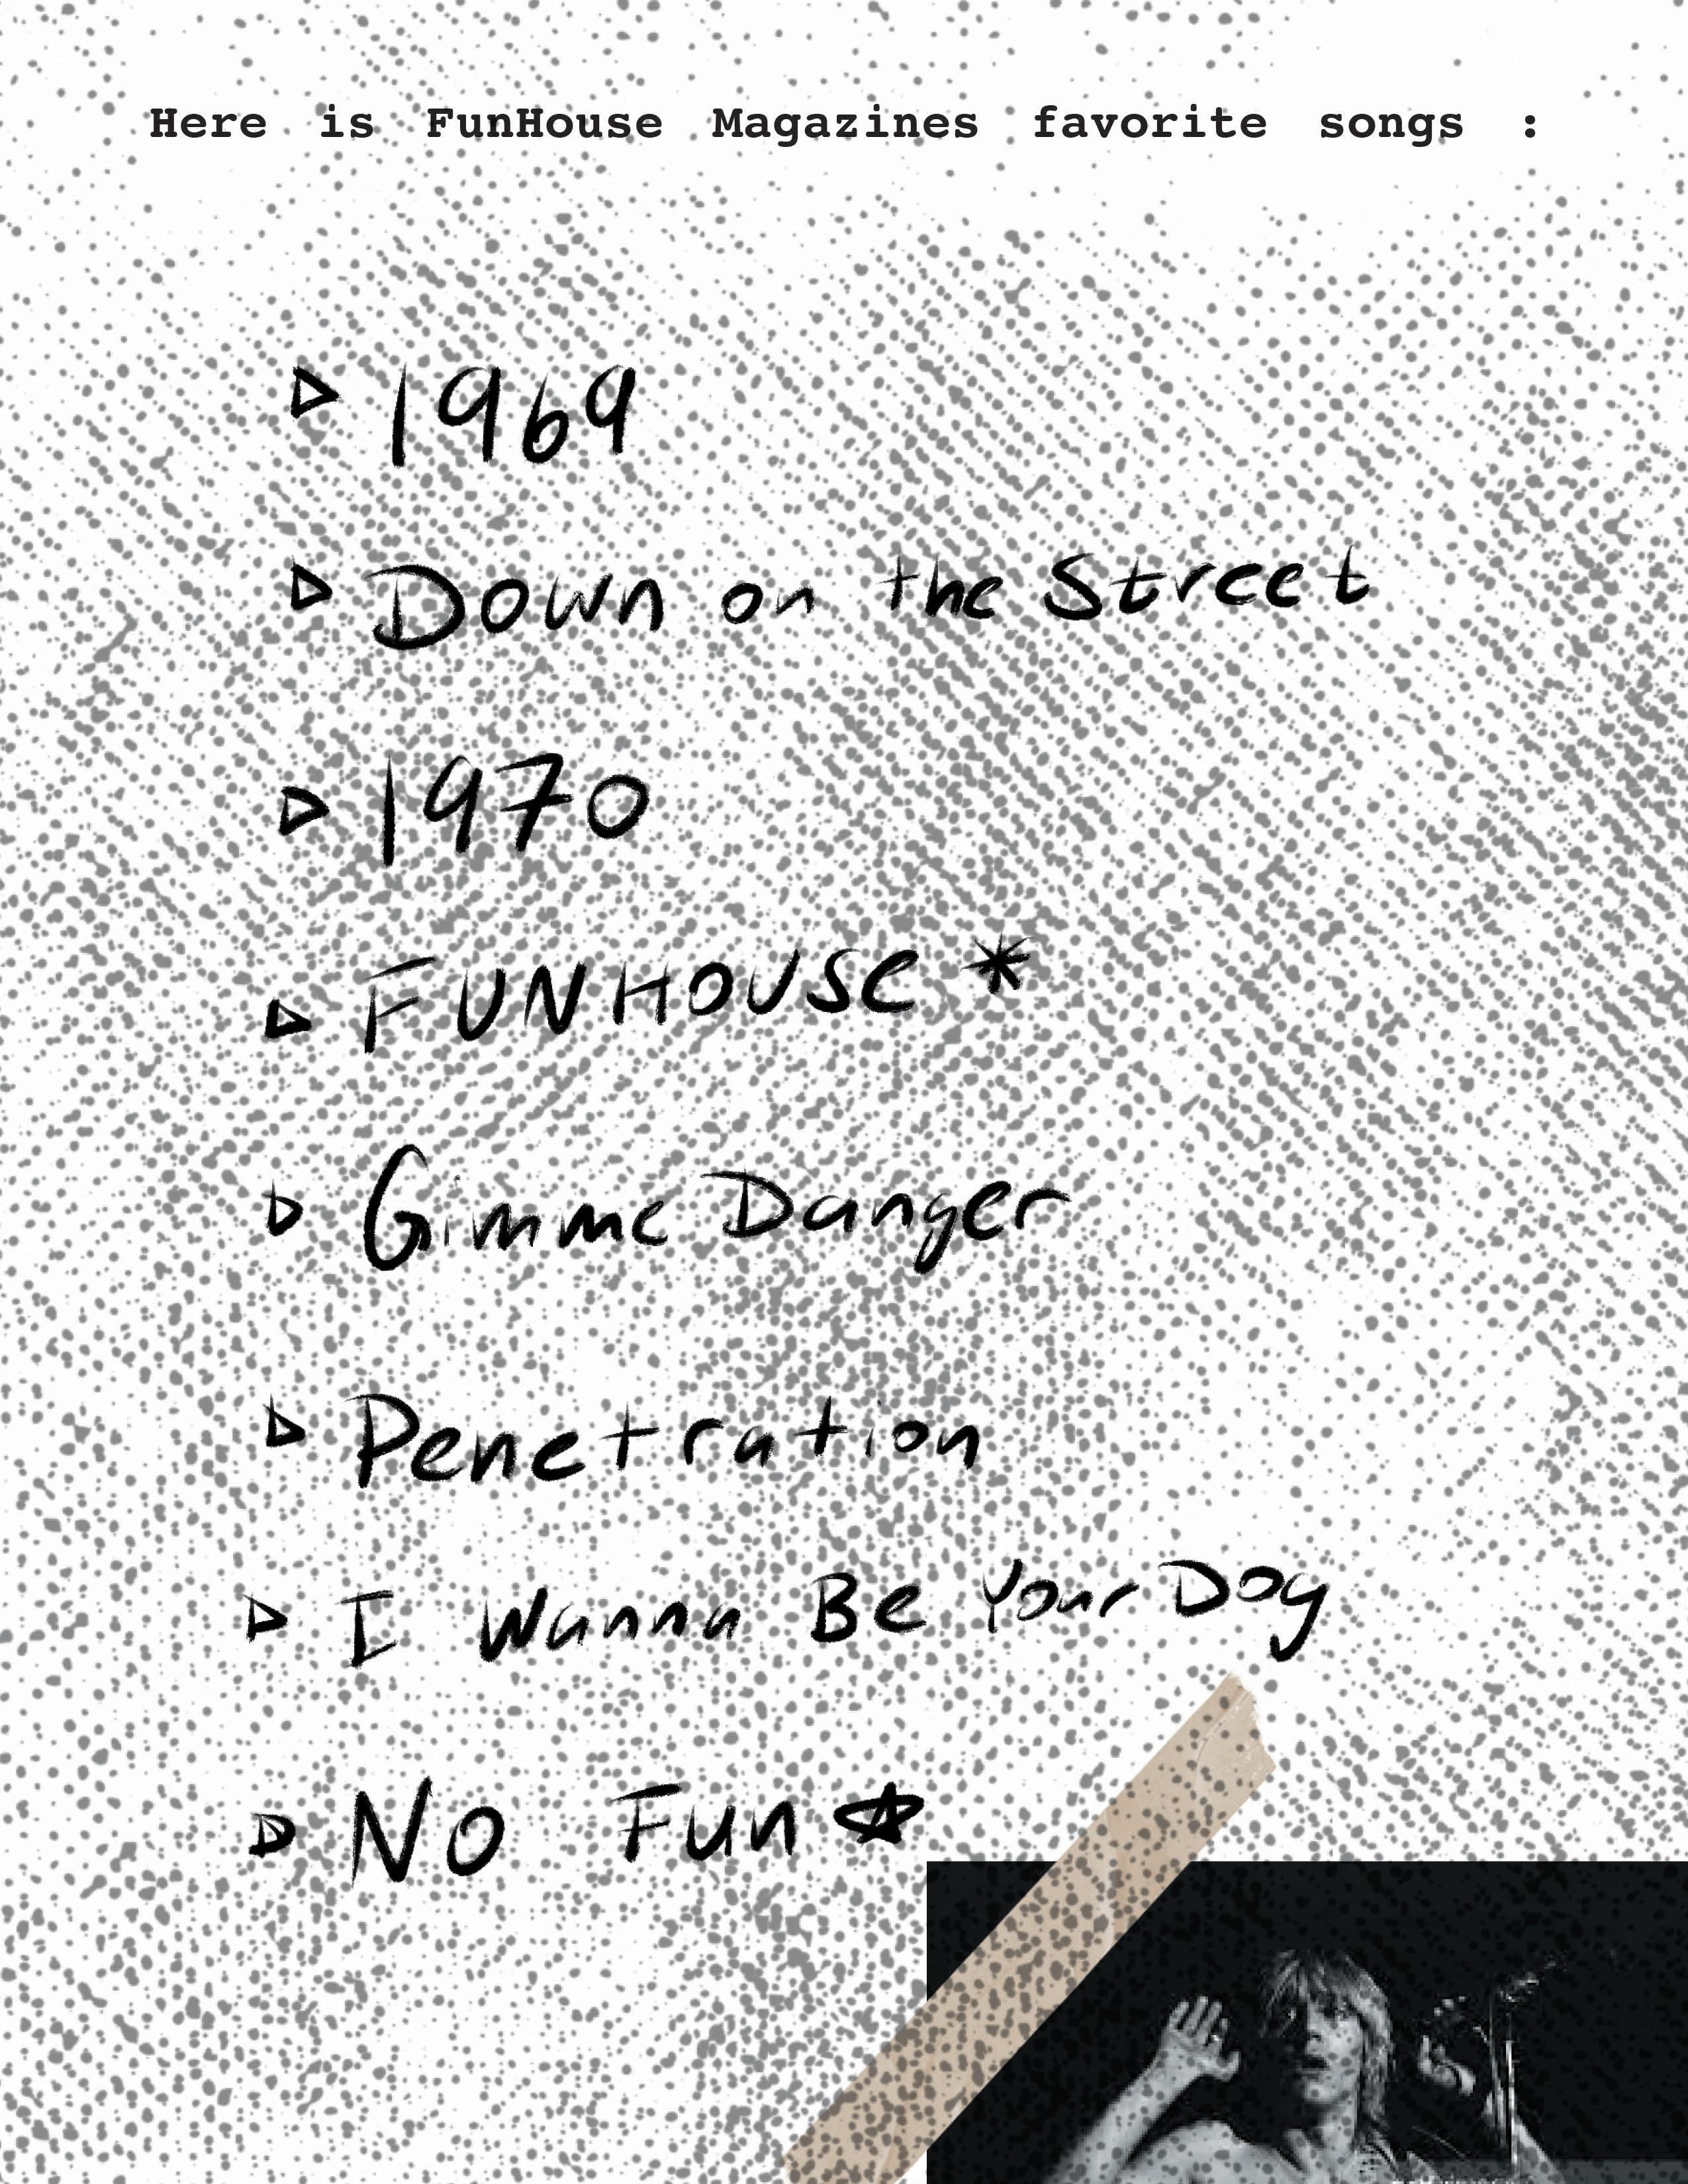 Here is FunHouse Magazines favorite songs :
1969
Down on the Street
1970
FUNHOUSE *
Gimme Danger
Penetration
I Wanna Be Your Dog
No Fun